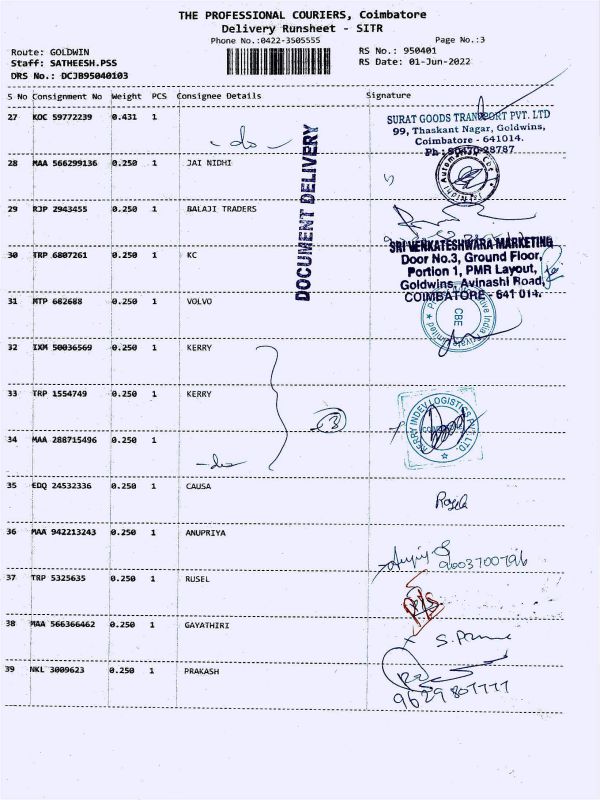 THE PROFESSIONAL COURIERS, Coimbatore
Delivery Runsheet - SITR
Phone No.:0422-3505555 Page No.:3
Route: GOLDWIN RS No.: 950401
Staff: SATHEESH.PSS RS Date: 01-Jun-2022
DRS No.: DCJB95040103
S No Consignment No Weight PCS Consignee Details Signature
27 KOC 59772239 0.431 1
SURAT GOODS TRANSPORT PVT. LTD
99, Thaskant Nagar, Goldwins,
Coimbatore - 641014.
- do -
28 MAA 566299136 0.250 1 JAI NIDHI
DOCUMENT DELIVERY
29 RJP 2943455 0.250 1 BALAJI TRADERS
SRI VENKATESHWARA MARKETING
30 TRP 6807261 0.250 1 KC
Door No.3, Ground Floor,
Portion 1, PMR Layout,
Goldwins, Avinashi Road,
COIMBATORE - 641 014.
31 MTP 682688 0.250 1 VOLVO
CBE
32 IXM 50036569 0.250 1 KERRY
33 TRP 1554749 0.250 1 KERRY
3
KERRY INDEV LOGISTICS PVT. LTD.
34 MAA 288715496 0.250 1
- do -
35 EDQ 24532336 0.250 1 CAUSA
36 MAA 942213243 0.250 1 ANUPRIYA
9003700796
37 TRP 5325635 0.250 1 RUSEL
38 MAA 566366462 0.250 1 GAYATHIRI
39 NKL 3009623 0.250 1 PRAKASH
9629807777